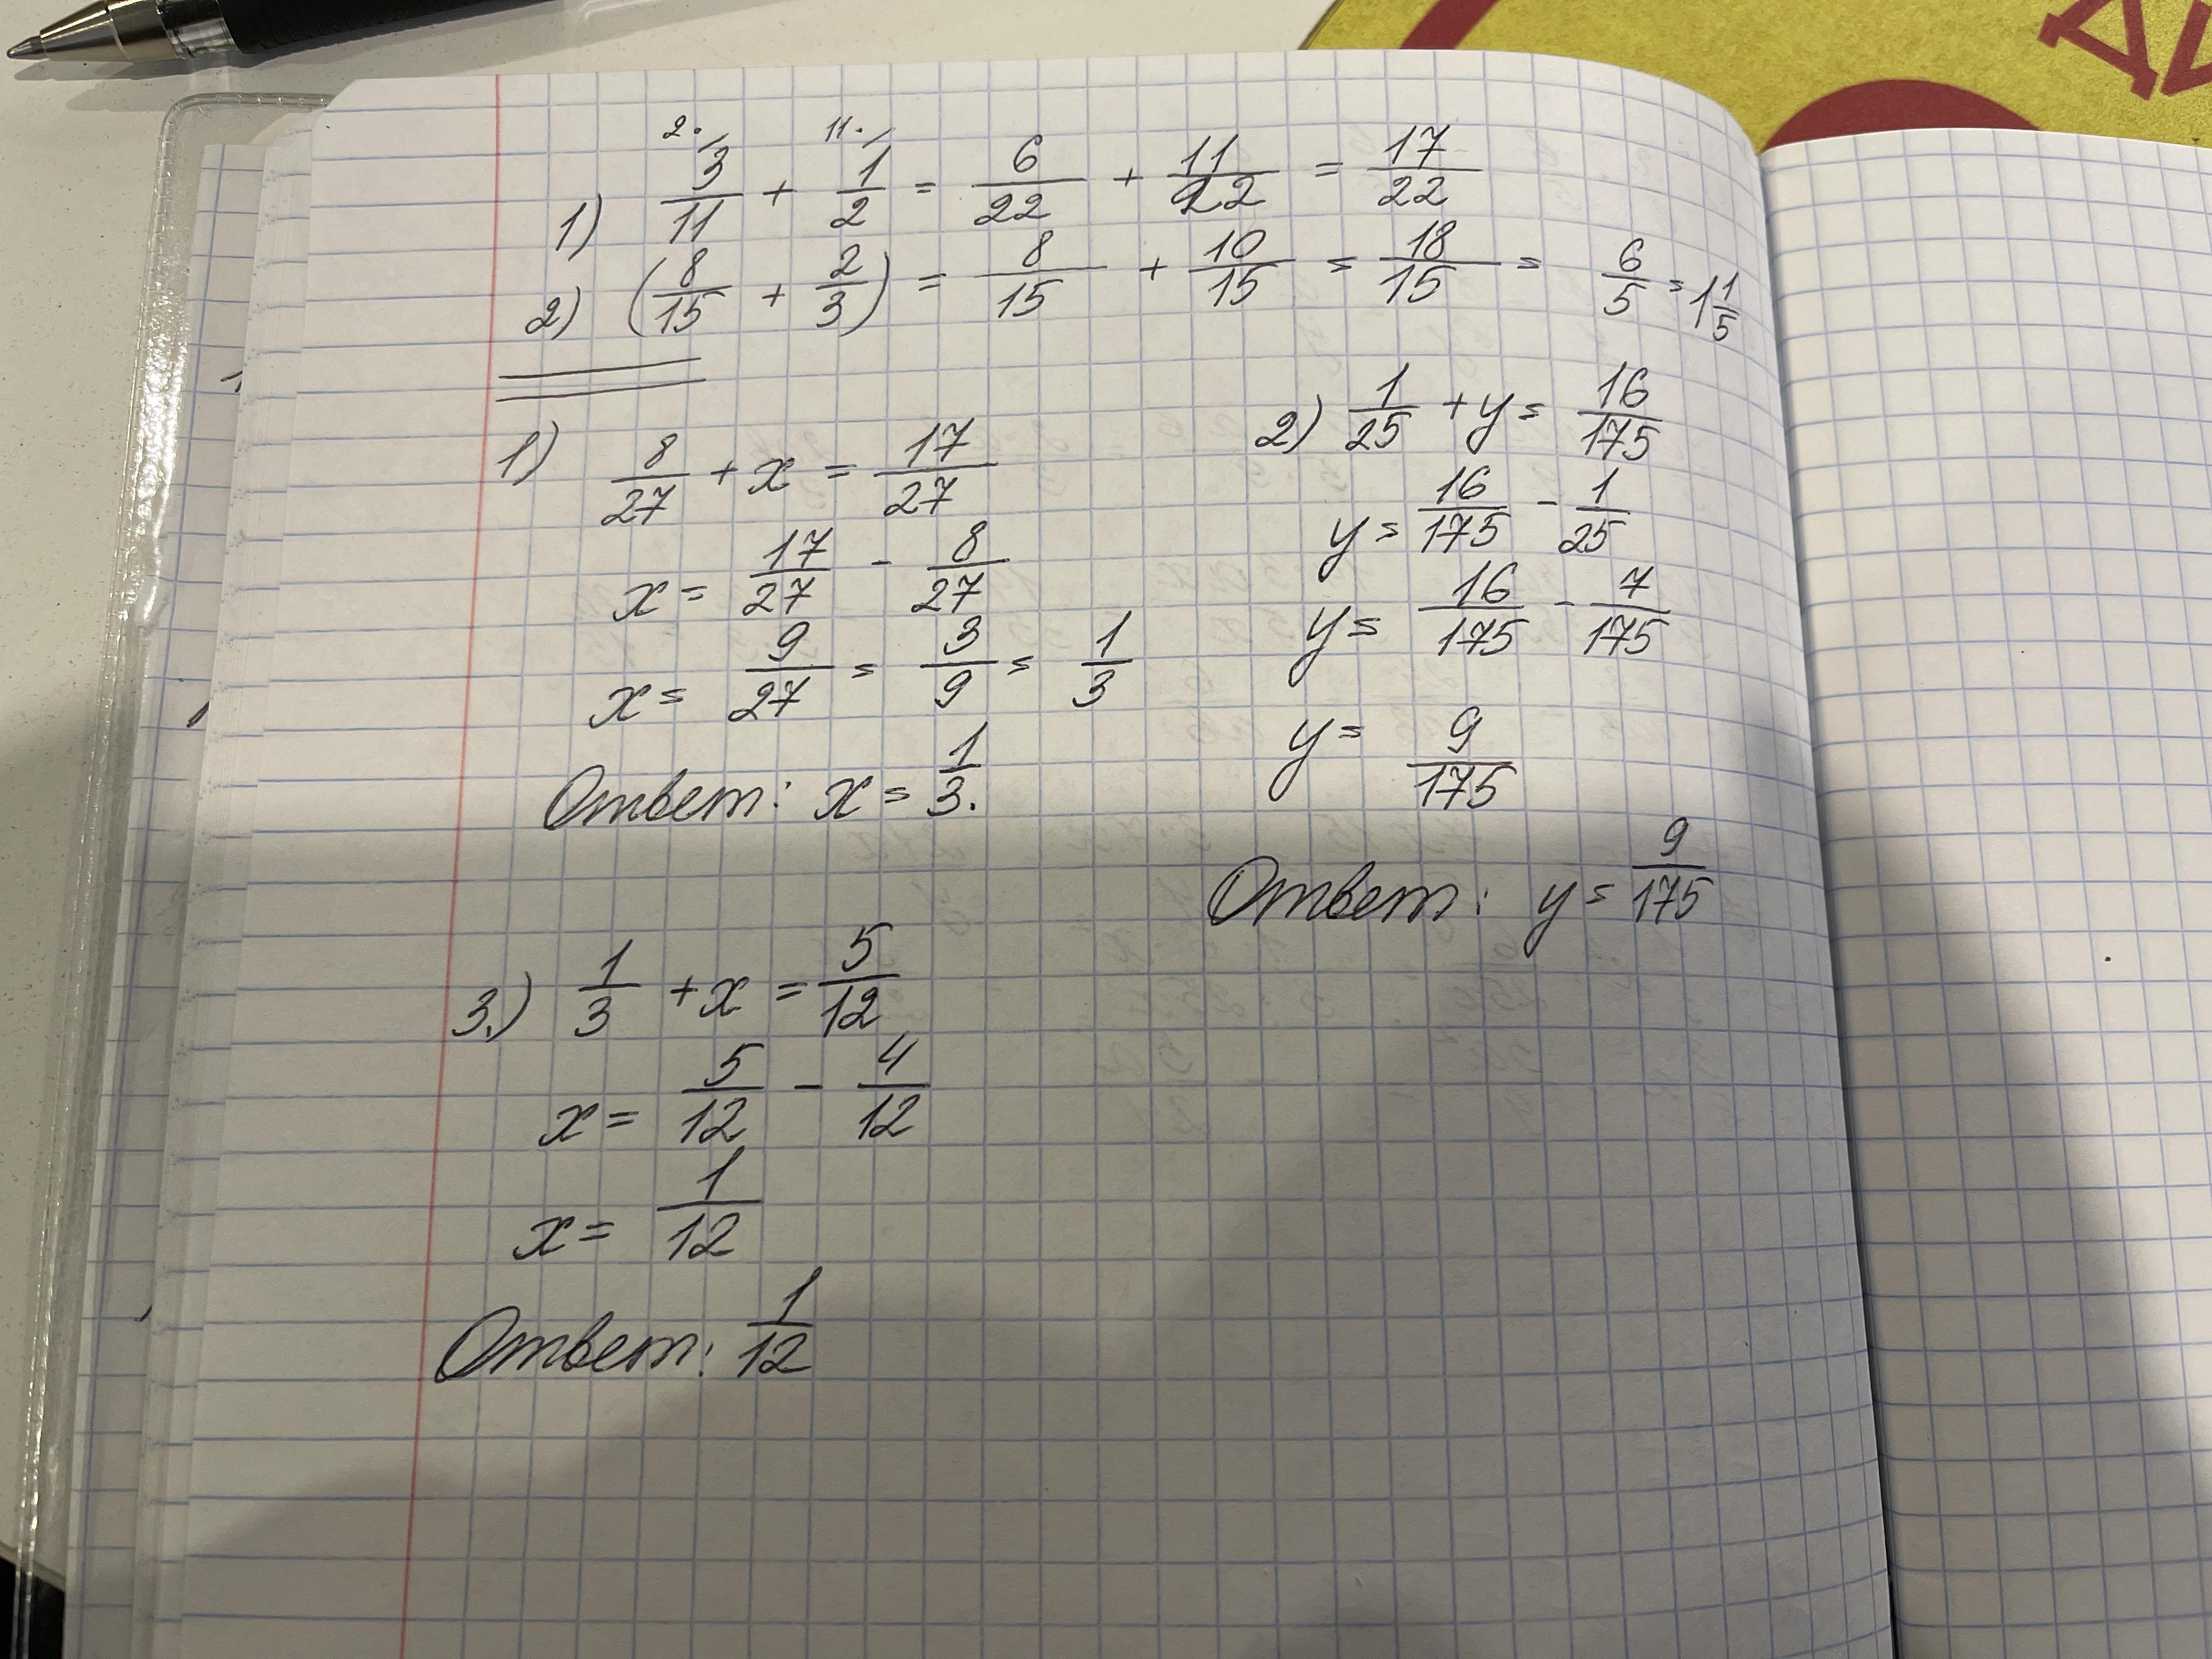 2· 11·
1) 3/11 + 1/2 = 6/22 + 11/22 = 17/22
2) (8/15 + 2/3) = 8/15 + 10/15 = 18/15 = 6/5 = 1 1/5
1) 8/27 + x = 17/27
x = 17/27 - 8/27
x = 9/27 = 3/9 = 1/3
Ответ: x = 1/3.
2) 1/25 + y = 16/175
y = 16/175 - 1/25
y = 16/175 - 7/175
y = 9/175
Ответ: y = 9/175
3.) 1/3 + x = 5/12
x = 5/12 - 4/12
x = 1/12
Ответ: 1/12